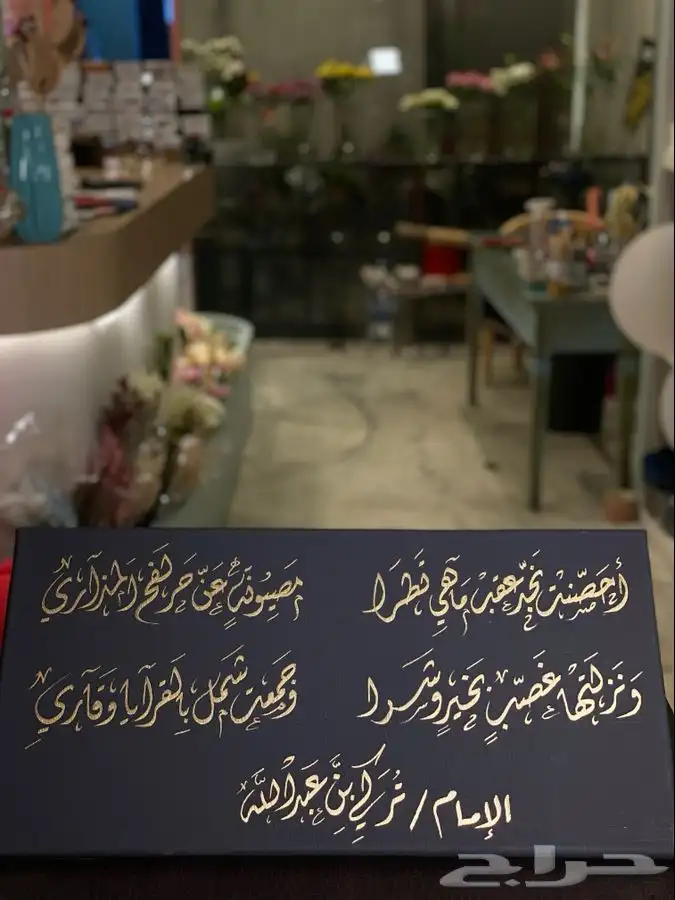 أحصنت نجد عقب ماهي تطرا مصيونة عن حر لفح المذاري
ونزلتها غصب بخير وشرا وجمعت شمل بالقرايا وقاري
الإمام / تركي بن عبدالله
حراج